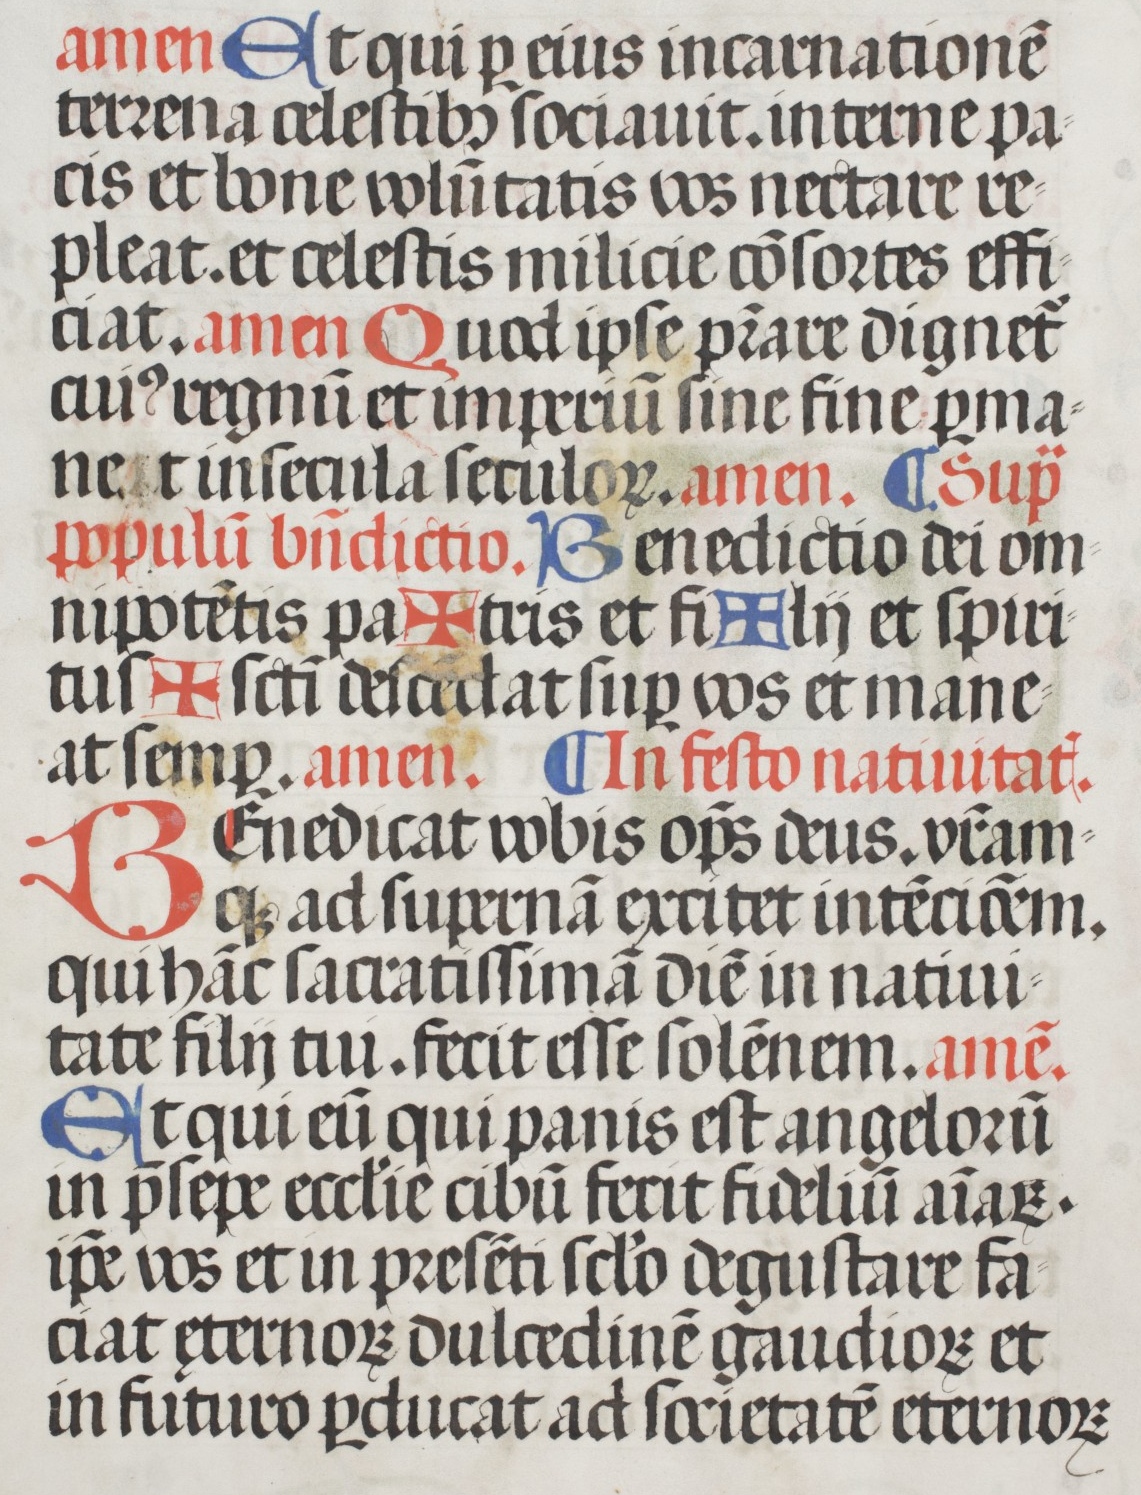 amen Et qui ꝑ eius incarnationē
terrena celestibꝫ sociauit. interne pa-
cis et bone volūtatis vos nectare re-
pleat. et celestis milicie cōsortes effi-
ciat. amen Quod ipse p̄rare dignet᷑
cuiꝰ regnū et imperiū sine fine ꝑma-
ne t in secula seculoꝝ. amen. ¶ Sup̄
populū bn̄dictio. Benedictio dei om-
nipotētis pa✠tris et fi✠lij et spiri-
tus ✠ sctī descēdat suꝑ vos et mane-
at semꝑ. amen. ¶ In festo natiuitat̄.
BEnedicat vobis op̄s deus. vr̄am-
qꝫ ad supernā excitet intēciōem.
qui hāc sacratissimā diē in natiui-
tate filij tui. fecit esse solēnem. amē.
Et qui eū qui panis est angelorū
in p̄sepe eccl̓ie cibū fecit fideliū aīaꝝ.
ip̄e vos et in presēti scl̓o degustare fa-
ciat ęternoꝝ dulcedinē gaudioꝝ et
in futuro ꝑducat ad societatē eternoꝝ